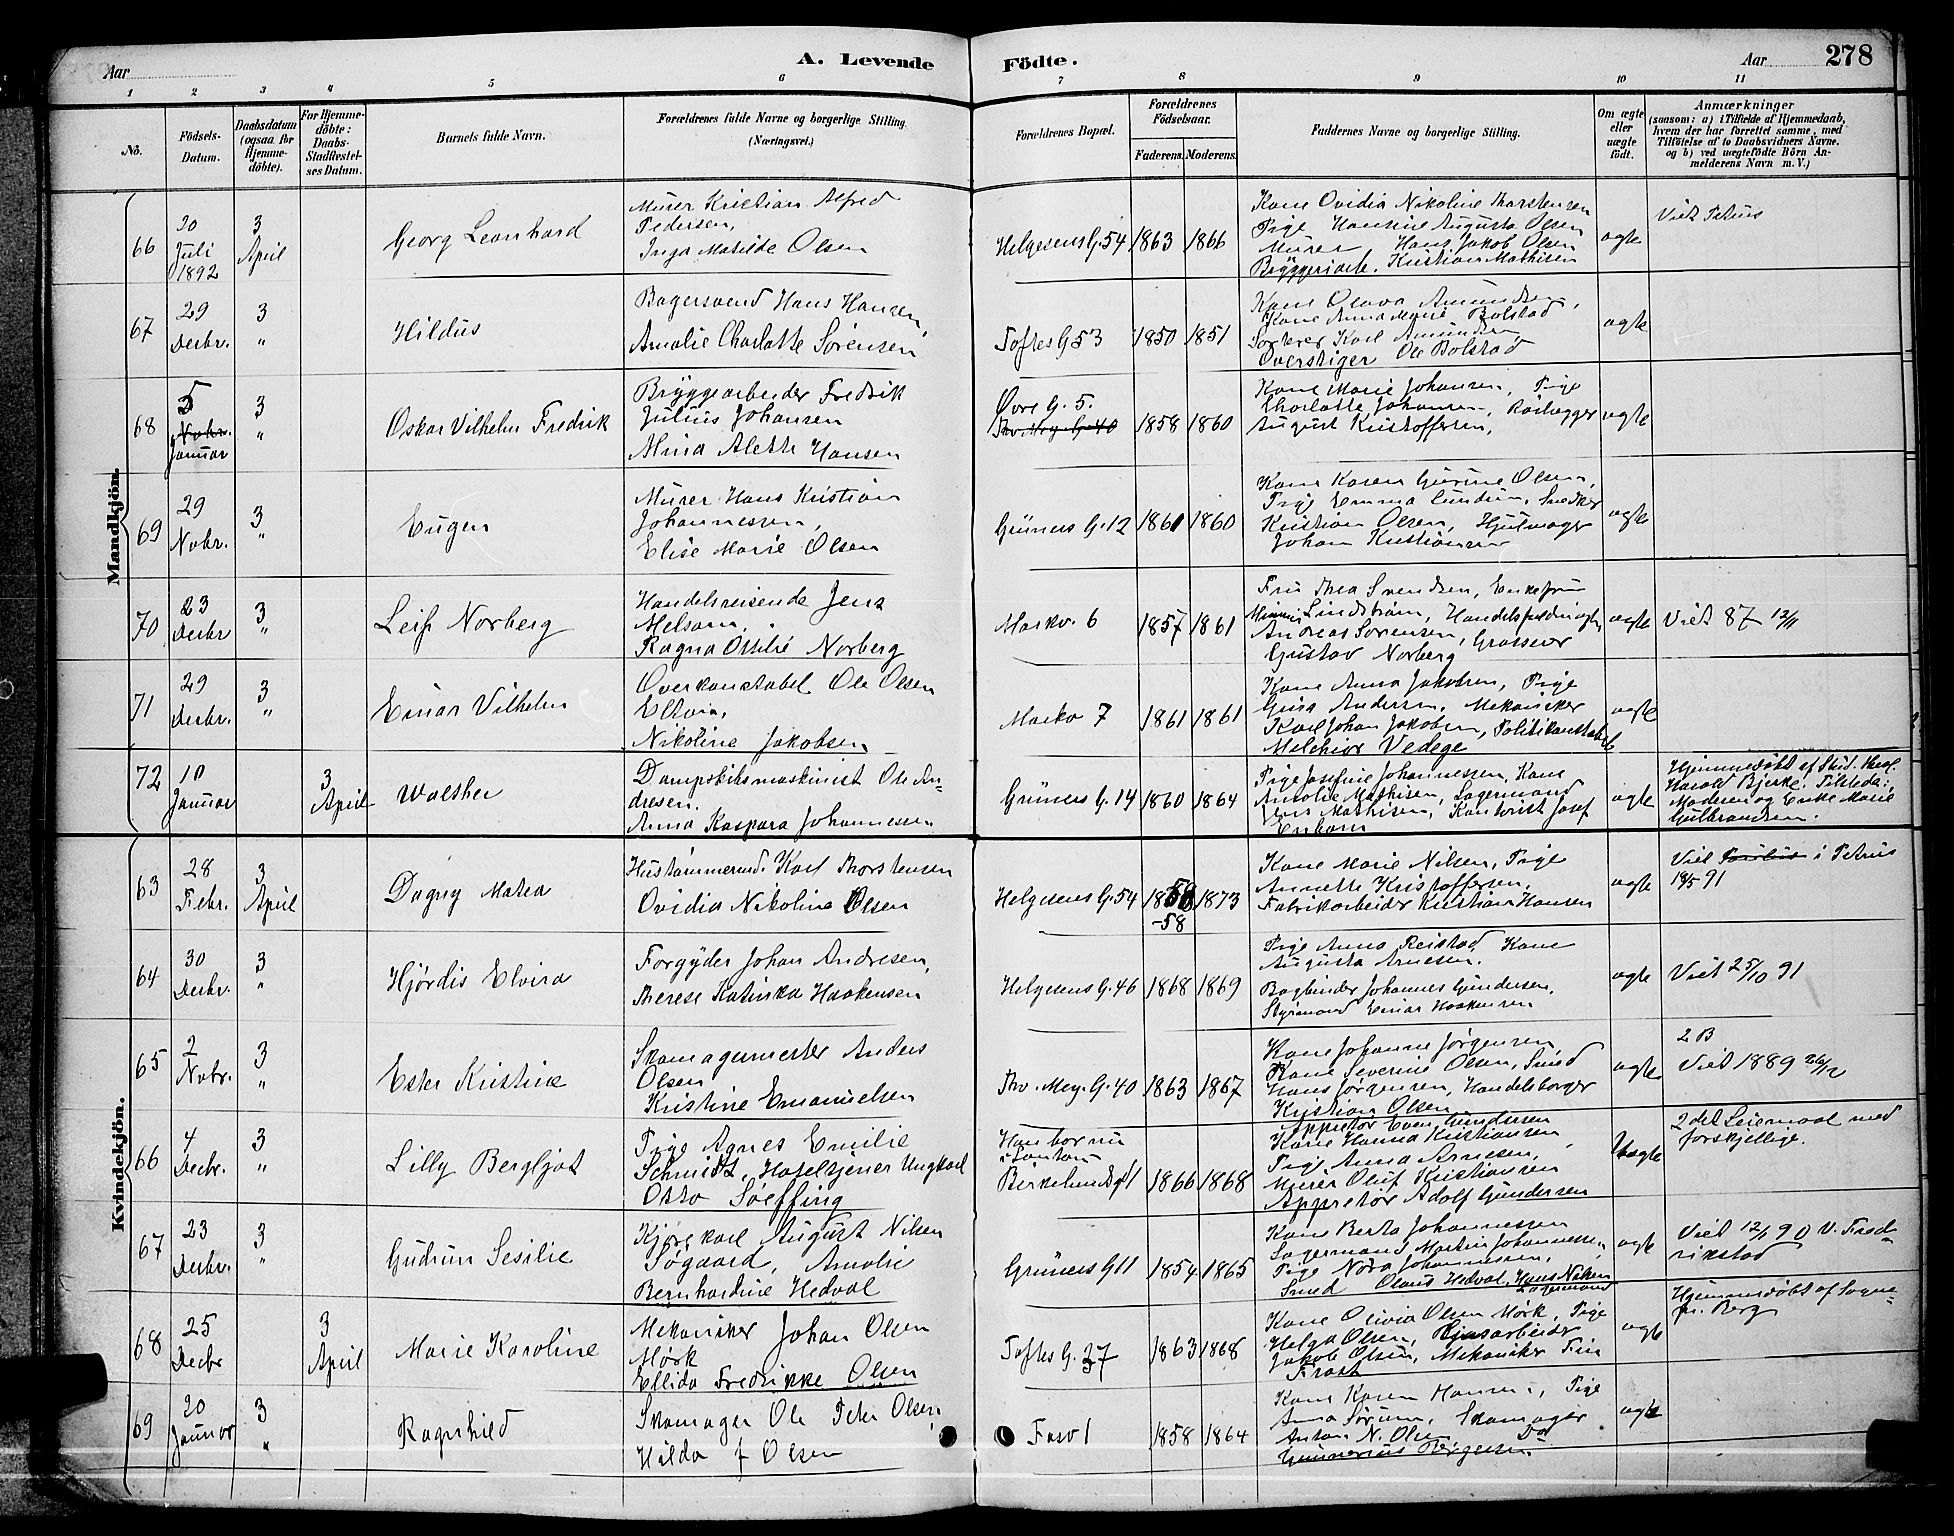 Aar
A. Levende
Födte.
Aar
278
1 2 3 4 5 6 7 8 9 10 11
No.
Födsels-
Datum.
Daabsdatum
(ogsaa for
Hjemme-
döbte).
For Hjemme-
döbte:
Daabs-
Stadfæstel-
ses Datum.
Barnets fulde Navn.
Forældrenes fulde Navne og borgerlige Stilling
(Næringsvei.)
Forældrenes Bopæl.
Forældrenes
Födselsaar.
Faderens. Moderens.
Faddernes Navne og borgerlige Stilling.
Om ægte
eller
uægte
födt.
Anmærkninger
(saasom: a) i Tilfælde af Hjemmedaab,
hvem der har forrettet samme, med
Tilföielse af to Daabsvidners Navne,
og b) ved uægtefödte Börn An-
melderens Navn m. V.)
Mandkjön.
66
30
Juli
1892
3
April
Georg Leonhard
Murer Kristian Alfred
Pedersen,
Inga Matilde Olsen
Helgesens G. 54
1863
1866
Kone Ovidia Nikoline Thorstensen
Pige Hansine Augusta Olsen
Murer Hans Jakob Olsen
Bryggeriarb. Kristian Mathisen
ægte
Viet Petrus
67
29
Decbr.
3
"
Hildus
Bagersvend Hans Hansen,
Amalie Charlotte Sörensen
Toftes G 53
1850
1851
Kone Olava Amundsen,
Kone Anna Marie Bolstad
Sorterer Karl Amundsen
Overstiger Ole Bolstad
ægte
68
5
Nobr.
Januar
3
"
Oskar Vilhelm Fredrik
Bryggearbeider Fredrik
Julius Johansen
Mina Alette Hansen
Øvre G. 5.
Thv. Mey. G. 40
1858
1860
Kone Marie Johansen, Pige
Kharlotte Johansen, Rörlægger
August Kristoffersen,
ægte
69
29
Nobr.
3
"
Eugen
Murer Hans Kristian
Johannessen,
Elise Marie Olsen
Grüners G. 12
1861
1860
Kone Karen Gurine Olsen,
Pige Emma Lundin, Snedker
Kristian Olsen, Hjulmager
Johan Kristiansen
ægte
70
23
Decbr
3
"
Leif Norberg
Handelsreisende Jens
Melsom,
Ragna Ottilie Norberg
Markv. 6
1857
1861
Fru Thea Svendsen, Enkefru
Mimmi Lindström,
Andreas Sorensen, Grosserer
Gustav Norberg
ægte
Viet 87 12/11
71
29
Decbr.
3
"
Einar Vilhelm
Overkonstabel Ole Olsen
Nikoline Jakobsen
Markv 7
1861
1861
Kone Anna Jakobsen, Pige
Gina Andersen, Mekaniker
Karl Johan Jakobsen, Politikonstabel
Melchior Vedege
ægte
72
10
Januar
3
April
Walther
Dampskibsmaskinist Ole An-
dresen.
Anna Kaspara Johannessen
Grüners G. 14
1860
1864
Pige Josefine Johannessen, Kone
Amalie Mathisen, Lagermand
Mathisen, Kontorist Josef
ægte
Hjemmedøbt af Stud. theol.
Harald Bjerke. Tilstede:
Moderen og Enke Marie
Gulbrandsen.
Kvindekjön.
63
28
Febr.
3
April
Dagny Matea
Hustømmermd. Karl Thorstensen
Ovidia Nikoline Olsen
Helgesens G. 54
1858
-58
1873
Kone Marie Nilsen, Pige
Annette Kristoffersen,
Fabrikarbeider Kristian Hansen
ægte
Viet i Petrus
18/5 91
64
30
Decbr.
3
"
Hjørdis Elvira
Forgylder Johan Andresen,
Therese Katinka Haakensen
Helgesens G. 46
1868
1869
Pige Anna Reistad, Kone
Augusta Arnesen,
Bogbinder Johannes Gundersen,
Styrmand Einar Haakensen
ægte
Viet 25/10 91
65
2
Nobr.
3
"
Ester Kristine
Skomagermester Anders
Olsen
Kristine Emanuelsen
Thv. Mey. G. 40
1863
1867
Kone Johanne Jørgensen,
Kone Severine Olsen, Smed
Hans Jørgensen, Handelsborger
Kristian Olsen
ægte
2 B
Viet 1889 26/12
66
4
Decbr.
3
"
Lilly Bergljot
Pige Agnes Emilie
Schmidt, Hoteltjener Ungkarl
Otto Søeffing
Han bor nu
i London
Birkelunds g 1
1866
1868
Appretør Even Gundersen
Kone Hanna Kristiansen
Pige Anna Arnesen,
Murer Oluf Kristiansen
Appretør Adolf Gundersen
Uægte
2det Leiermaal med
forskjellige.
67
23
Decbr.
3
"
Gudrun Sesilie
Kjørekarl August Nilsen
Søgaard, Amalie
Bernhardine Hedval
Grüners G 11
1854
1865
Kone Berta Johannessen
Lagermand Martin Johannessen,
Pige Nora Johannessen,
Smed Olaus Hedval, Hans Nilsen
Lagermand
ægte
Viet 12/1 90 V. Fred-
rikstad
68
25
Decbr
3
April
Marie Karoline
Mekaniker Johan Olsen
Mørk
Ellida Fredrikke Olsen
Toftes G. 37
1863
1868
Kone Olivia Olsen Mørk, Pige
Helga Olsen,
Jakob Olsen, Mekaniker
Frost
ægte
Hjemmedøbt af Sogne-
pr. Berg
69
20
Januar
3
"
Ragnhild
Skomager Ole Peter Olsen,
Hilda J Olsen
Fosv 1
1858
1864
Kone Karen Hansen, Pige
Anna Sørum, Skomager
Anton N. Olsen Do
Gunnerius Børgesen
ægte